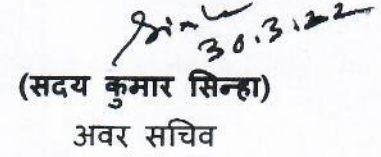 30.3.22
(सदय कुमार सिन्हा)
अवर सचिव